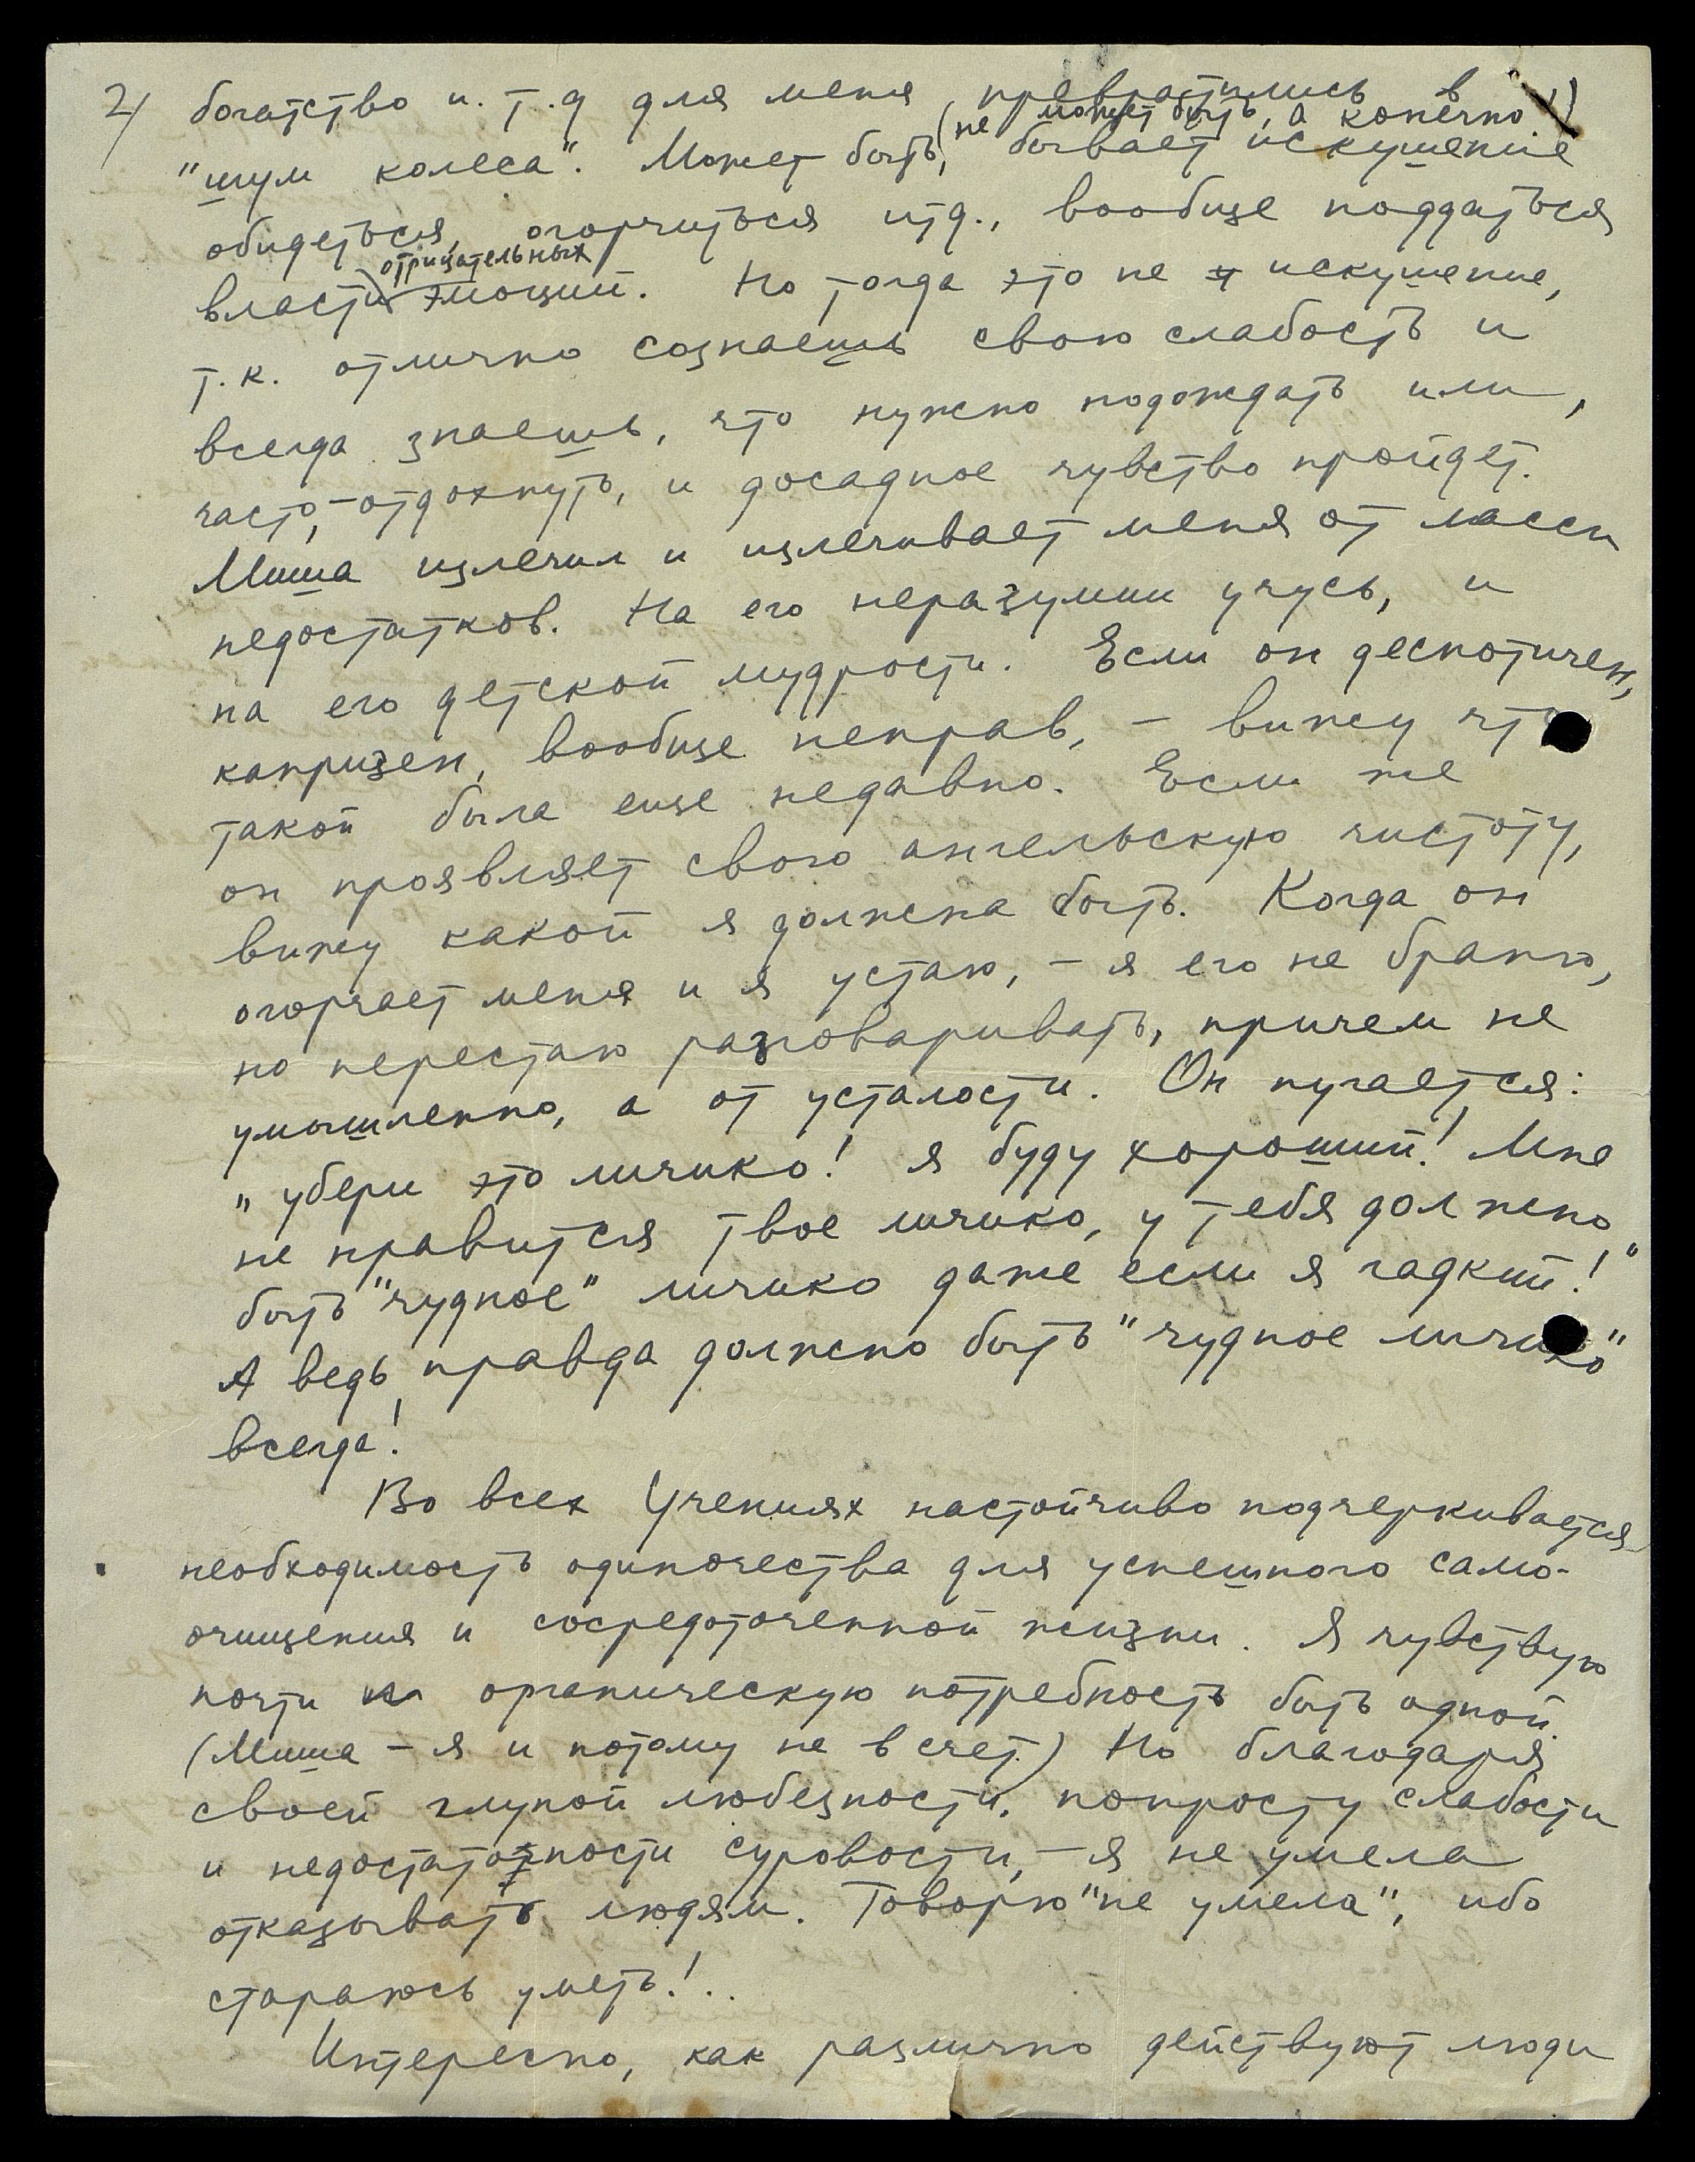 2/ богатство и.т.д для меня превратились в
(не может быть, а конечно!)
"шум колеса". Может быть, бывает искушение
обидеться, огорчиться итд., вообще поддаться
отрицательных
власти эмоций. Но тогда это не искушение,
т.к. отлично сознаешь свою слабость и
всегда знаешь, что нужно подождать или,
часто, - отдохнуть, и досадное чувство пройдет.
Миша излечил и излечивает меня от массы
недостатков. На его неразумии учусь, и
на его детской мудрости. Если он деспотичен,
капризен, вообще неправ, - вижу что
такой была еще недавно. Если же
он проявляет свою ангельскую чистоту,
вижу какой я должна быть. Когда он
огорчает меня и я устаю, - я его не браню,
но перестаю разговаривать, причем не
умышленно, а от усталости. Он пугается:
"убери это личико! я буду хороший! Мне
не нравится твое личико, у тебя должно
быть "чудное" личико даже если я гадкий!"
А ведь правда должно быть "чудное личико"
всегда!
Во всех Учениях настойчиво подчеркивается
необходимость одиночества для успешного само-
очищения и сосредоточенной жизни. Я чувствую
почти органическую потребность быть одной.
(Миша - я и потому не в счет.) Но благодаря
своей глупой любезности, попросту слабости
и недостаточности суровости, - я не умела
отказывать людям. Говорю "не умела", ибо
стараюсь уметь!..
Интересно, как различно действуют люди